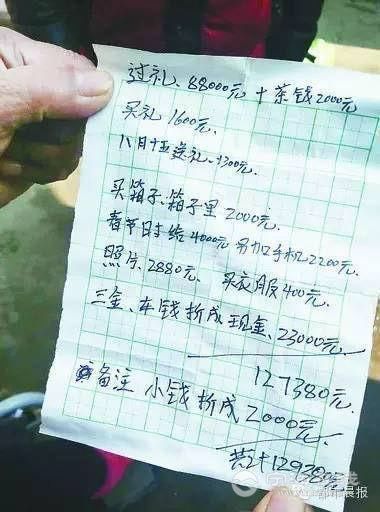 过礼、88000元 十茶钱2000元
买礼 1600元.
八月十五送礼、1300元.
买箱子、箱子里 2000元.
春节日车给4000元 另加手机2200元.
照片、2880元、 买衣服400元.
三金、车钱折成现金、23000元.
127380元.
备注 小钱折成2000元
共计129380元
都市晨报